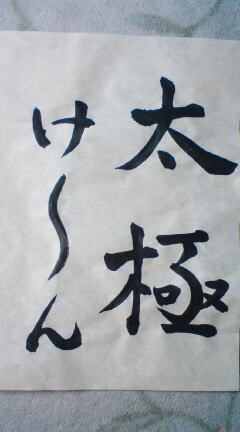 太極
け〜ん